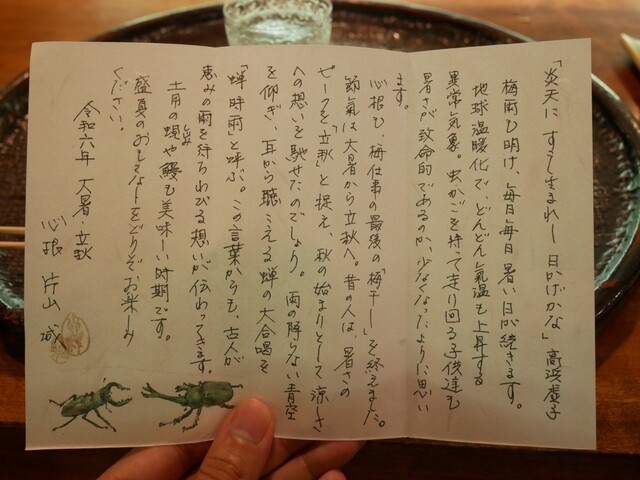 「炎天に すこし生まれし 日かげかな」高浜虚子
梅雨も明け、毎日毎日暑い日が続きます。
地球温暖化で、どんどん氣温も上昇する
異常気象。虫かごを持って走り回る子供達も
暑さが致命的であるのか、少なくなったように思い
ます。
心根も、梅仕事の最後の「梅干し」を終えました。
節氣は大暑から立秋へ。昔の人は、暑さの
ピークを「立秋」と捉え、秋の始まりとして涼しさ
への想いを馳せたのでしょう。雨の降らない青空
を仰ぎ、耳から聴こえる蝉の大合唱を
「蝉時雨」と呼ぶ。この言葉からも、古人が
恵みの雨を待ちわびる想いが伝わってきます。
土用の蜆や鰻も美味しい時期です。
しじみ
盛夏のおもてなしをどうぞお楽しみ
ください。
令和六年 大暑・立秋
心根 片山 城